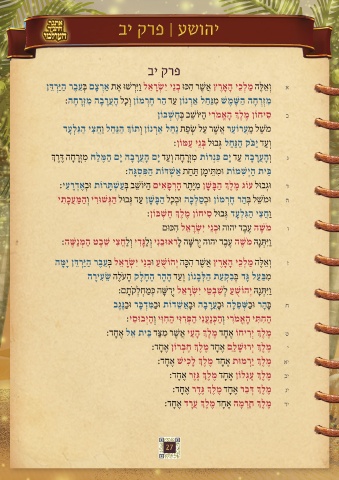 יהושע | פרק יב
פרק יב
א וְאֵלֶּה מַלְכֵי הָאָרֶץ אֲשֶׁר הִכּוּ בְנֵי יִשְׂרָאֵל וַיִּרְשׁוּ אֶת אַרְצָם בְּעֵבֶר הַיַּרְדֵּן
מִזְרְחָה הַשָּׁמֶשׁ מִנַּחַל אַרְנוֹן עַד הַר חֶרְמוֹן וְכָל הָעֲרָבָה מִזְרָחָה:
ב סִיחוֹן מֶלֶךְ הָאֱמֹרִי הַיּוֹשֵׁב בְּחֶשְׁבּוֹן
מֹשֵׁל מֵעֲרוֹעֵר אֲשֶׁר עַל שְׂפַת נַחַל אַרְנוֹן וְתוֹךְ הַנַּחַל וַחֲצִי הַגִּלְעָד
וְעַד יַבֹּק הַנַּחַל גְּבוּל בְּנֵי עַמּוֹן:
ג וְהָעֲרָבָה עַד יָם כִּנְרוֹת מִזְרָחָה וְעַד יָם הָעֲרָבָה יָם הַמֶּלַח מִזְרָחָה דֶּרֶךְ
בֵּית הַיְשִׁמוֹת וּמִתֵּימָן תַּחַת אַשְׁדּוֹת הַפִּסְגָּה:
ד וּגְבוּל עוֹג מֶלֶךְ הַבָּשָׁן מִיֶּתֶר הָרְפָאִים הַיּוֹשֵׁב בְּעַשְׁתָּרוֹת וּבְאֶדְרֶעִי:
ה וּמֹשֵׁל בְּהַר חֶרְמוֹן וּבְסַלְכָה וּבְכָל הַבָּשָׁן עַד גְּבוּל הַגְּשׁוּרִי וְהַמַּעֲכָתִי
וַחֲצִי הַגִּלְעָד גְּבוּל סִיחוֹן מֶלֶךְ חֶשְׁבּוֹן:
ו מֹשֶׁה עֶבֶד יְהוָה וּבְנֵי יִשְׂרָאֵל הִכּוּם
וַיִּתְּנָהּ מֹשֶׁה עֶבֶד יְהוָה יְרֻשָּׁה לָראוּבֵנִי וְלַגָּדִי וְלַחֲצִי שֵׁבֶט הַמְנַשֶּׁה:
ז וְאֵלֶּה מַלְכֵי הָאָרֶץ אֲשֶׁר הִכָּה יְהוֹשֻׁעַ וּבְנֵי יִשְׂרָאֵל בְּעֵבֶר הַיַּרְדֵּן יָמָּה
מִבַּעַל גָּד בְּבִקְעַת הַלְּבָנוֹן וְעַד הָהָר הֶחָלָק הָעֹלֶה שֵׂעִירָה
וַיִּתְּנָהּ יְהוֹשֻׁעַ לְשִׁבְטֵי יִשְׂרָאֵל יְרֻשָּׁה כְּמַחְלְקֹתָם:
ח בָּהָר וּבַשְּׁפֵלָה וּבָעֲרָבָה וּבָאֲשֵׁדוֹת וּבַמִּדְבָּר וּבַנֶּגֶב
הַחִתִּי הָאֱמֹרִי וְהַכְּנַעֲנִי הַפְּרִזִּי הַחִוִּי וְהַיְבוּסִי:
ט מֶלֶךְ יְרִיחוֹ אֶחָד מֶלֶךְ הָעַי אֲשֶׁר מִצַּד בֵּית אֵל אֶחָד:
י מֶלֶךְ יְרוּשָׁלִַם אֶחָד מֶלֶךְ חֶבְרוֹן אֶחָד:
יא מֶלֶךְ יַרְמוּת אֶחָד מֶלֶךְ לָכִישׁ אֶחָד:
יב מֶלֶךְ עֶגְלוֹן אֶחָד מֶלֶךְ גֶּזֶר אֶחָד:
יג מֶלֶךְ דְּבִר אֶחָד מֶלֶךְ גֶּדֶר אֶחָד:
יד מֶלֶךְ חָרְמָה אֶחָד מֶלֶךְ עֲרָד אֶחָד:
27